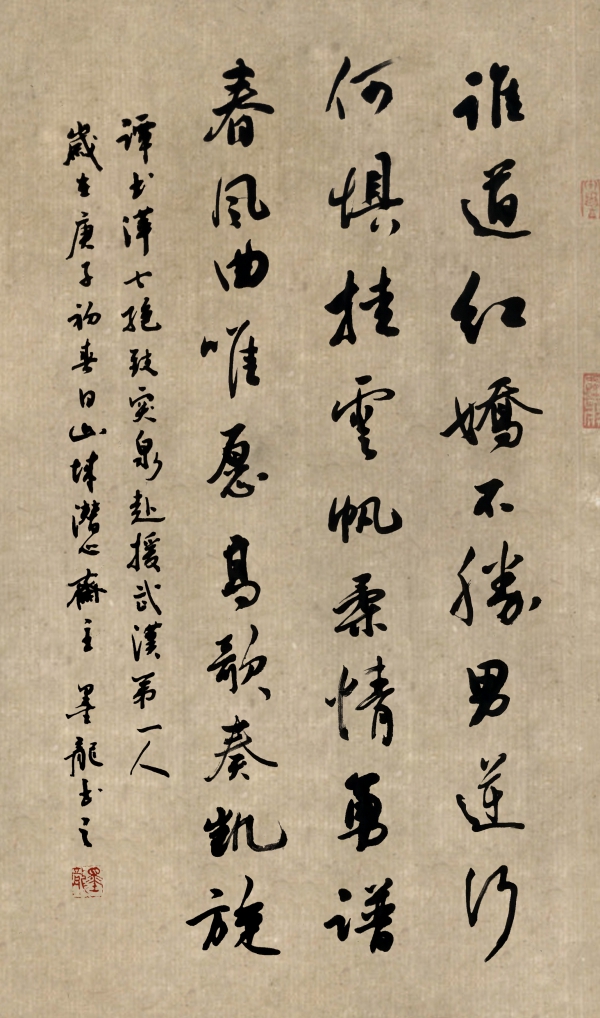 誰道红嬌不勝男逆行
何惧挂雲帆柔情勇谱
春风曲唯愿高歌奏凯旋
譚书洋七绝致突泉赴援武漢第一人
歲在庚子初春日山城潜心齋主 墨龍书之
墨龍